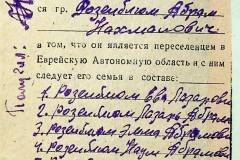 ся гр. Розенблюм Абрам
Нахманович
в том, что он является переселенцем в
Еврейскую Автономную область и с ним
следует его семья в составе:
1. Розенблюм Ева Лазаровн
2. Розенблюм Лазарь Абрамо
3. Розенблюм Абрамов
4. Розенблюм Наум Абрамо